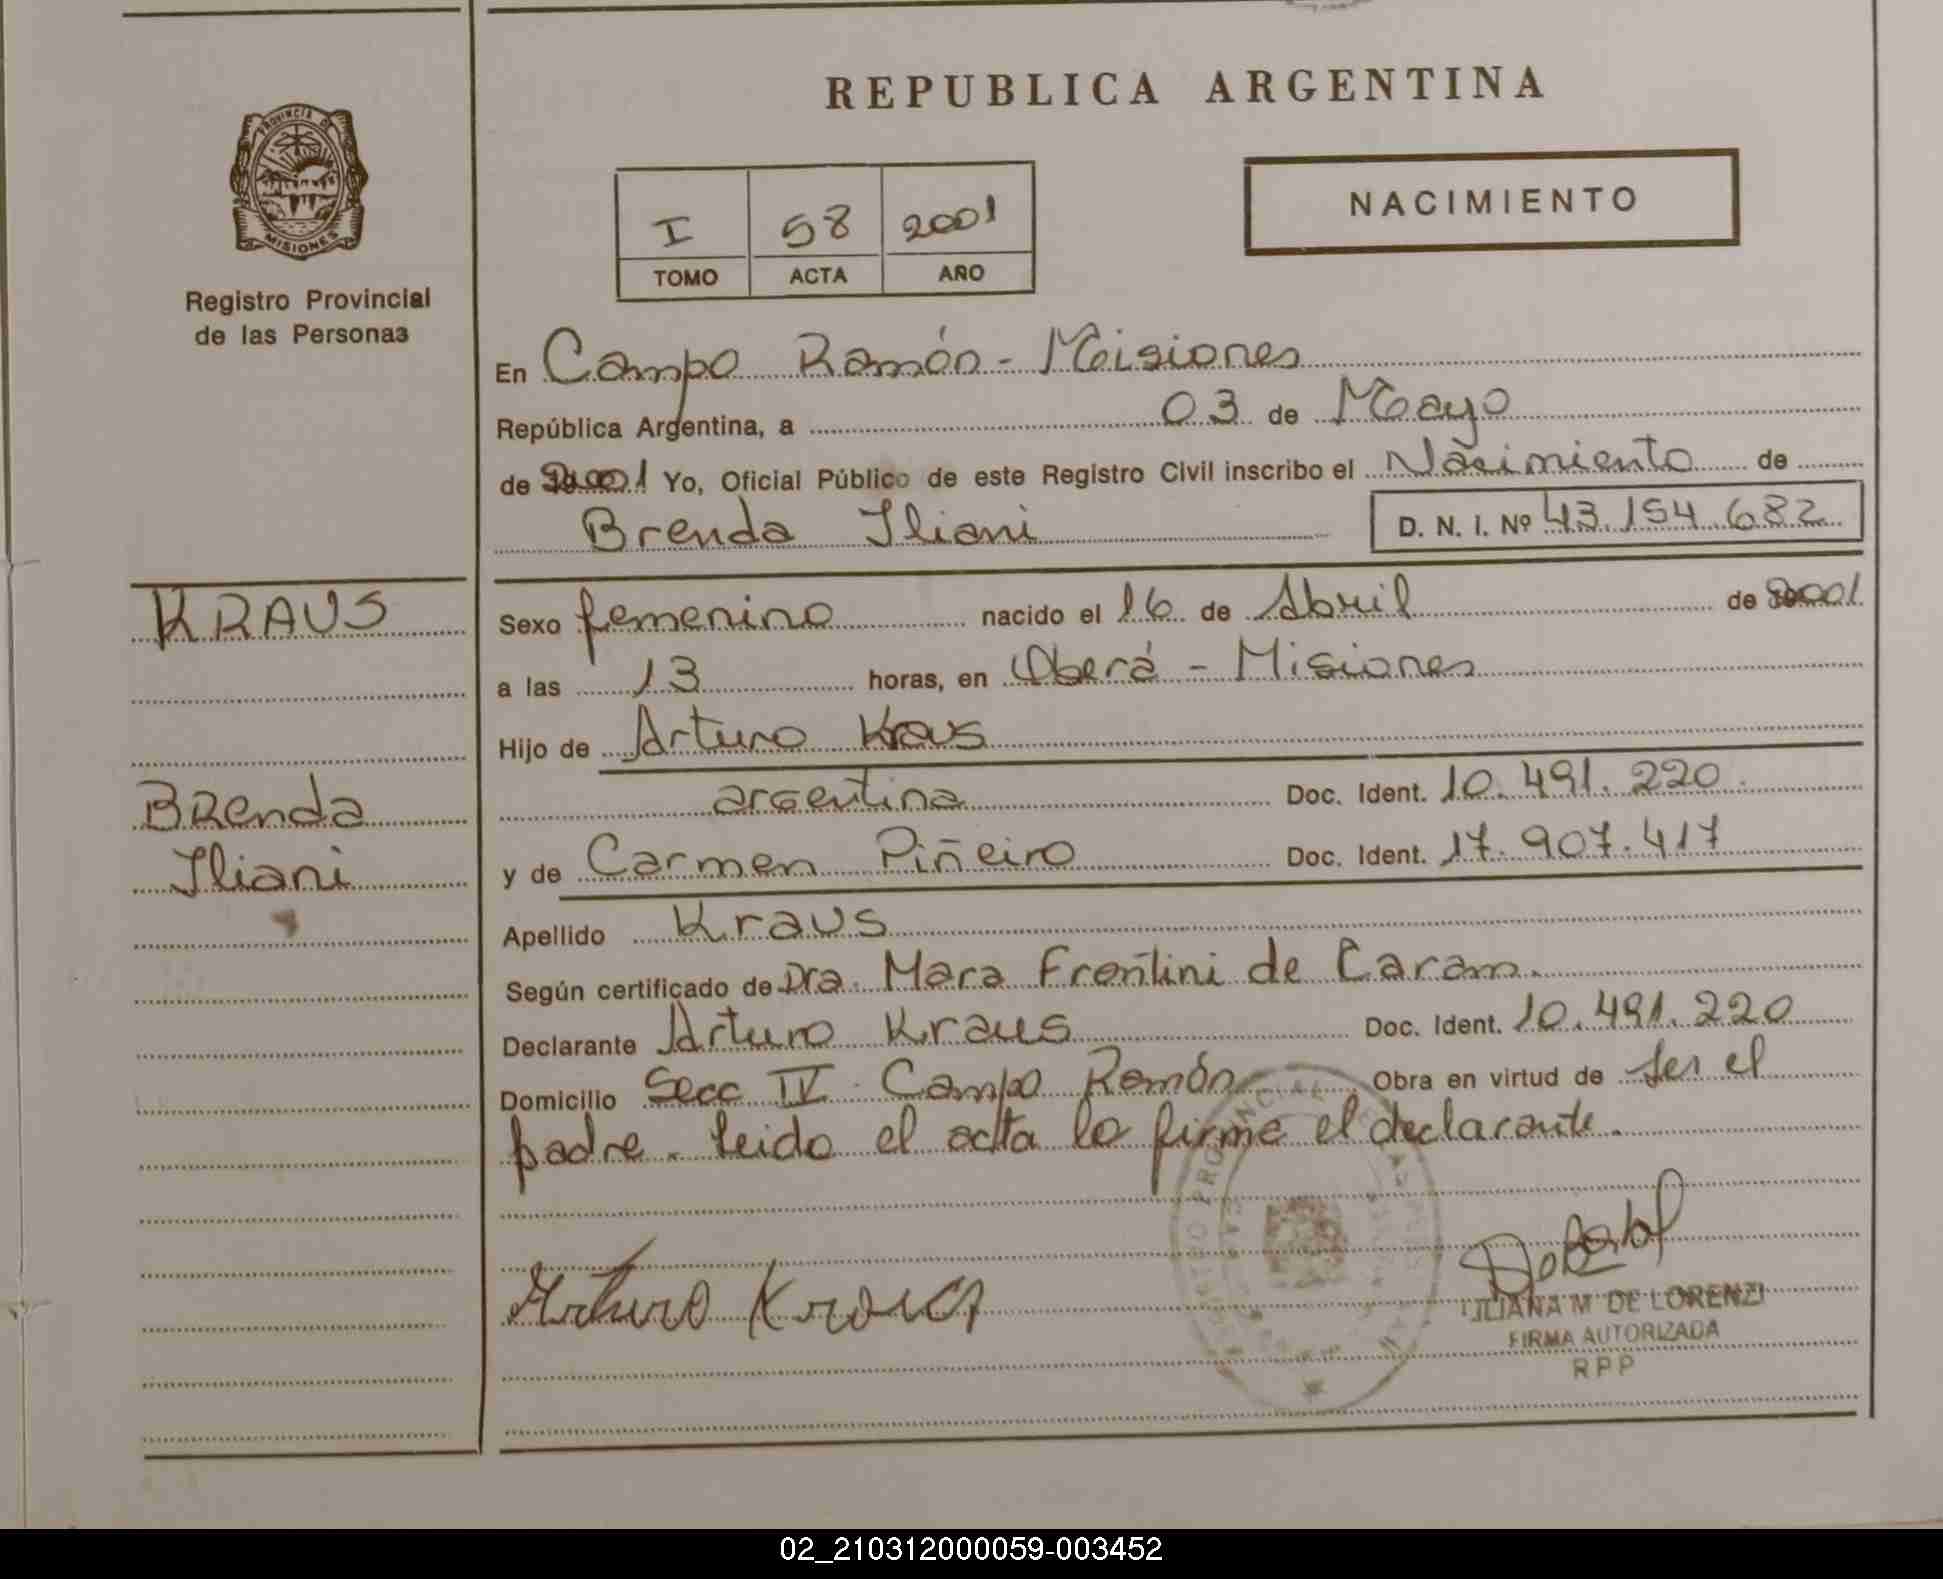 REPUBLICA ARGENTINA
PROVINCIA DE
MISIONES
Registro Provincial
de las Personas
NACIMIENTO
I 58 2001
TOMO ACTA AÑO
En Campo Ramón - Misiones
República Argentina, a 03 de Mayo
de 2001 Yo, Oficial Público de este Registro Civil inscribo el Nacimiento de
Brenda Iliani D. N. I. Nº 43.154.682
KRAUS
Brenda
Iliani
Sexo femenino nacido el 16 de Abril de 2001
a las 13 horas, en Oberá - Misiones
Hijo de Arturo Kraus
argentina Doc. Ident. 10.491.220
y de Carmen Piñeiro Doc. Ident. 17.907.417
Apellido Kraus
Según certificado de Dra. Mara Frontini de Caram.
Declarante Arturo Kraus Doc. Ident. 10.491.220
Domicilio Secc IV. Campo Ramón Obra en virtud de ser el
padre. leido el acta lo firma el declarante.
Arturo Kraus
LILIANA M DE LORENZI
FIRMA AUTORIZADA
RPP
02_210312000059-003452